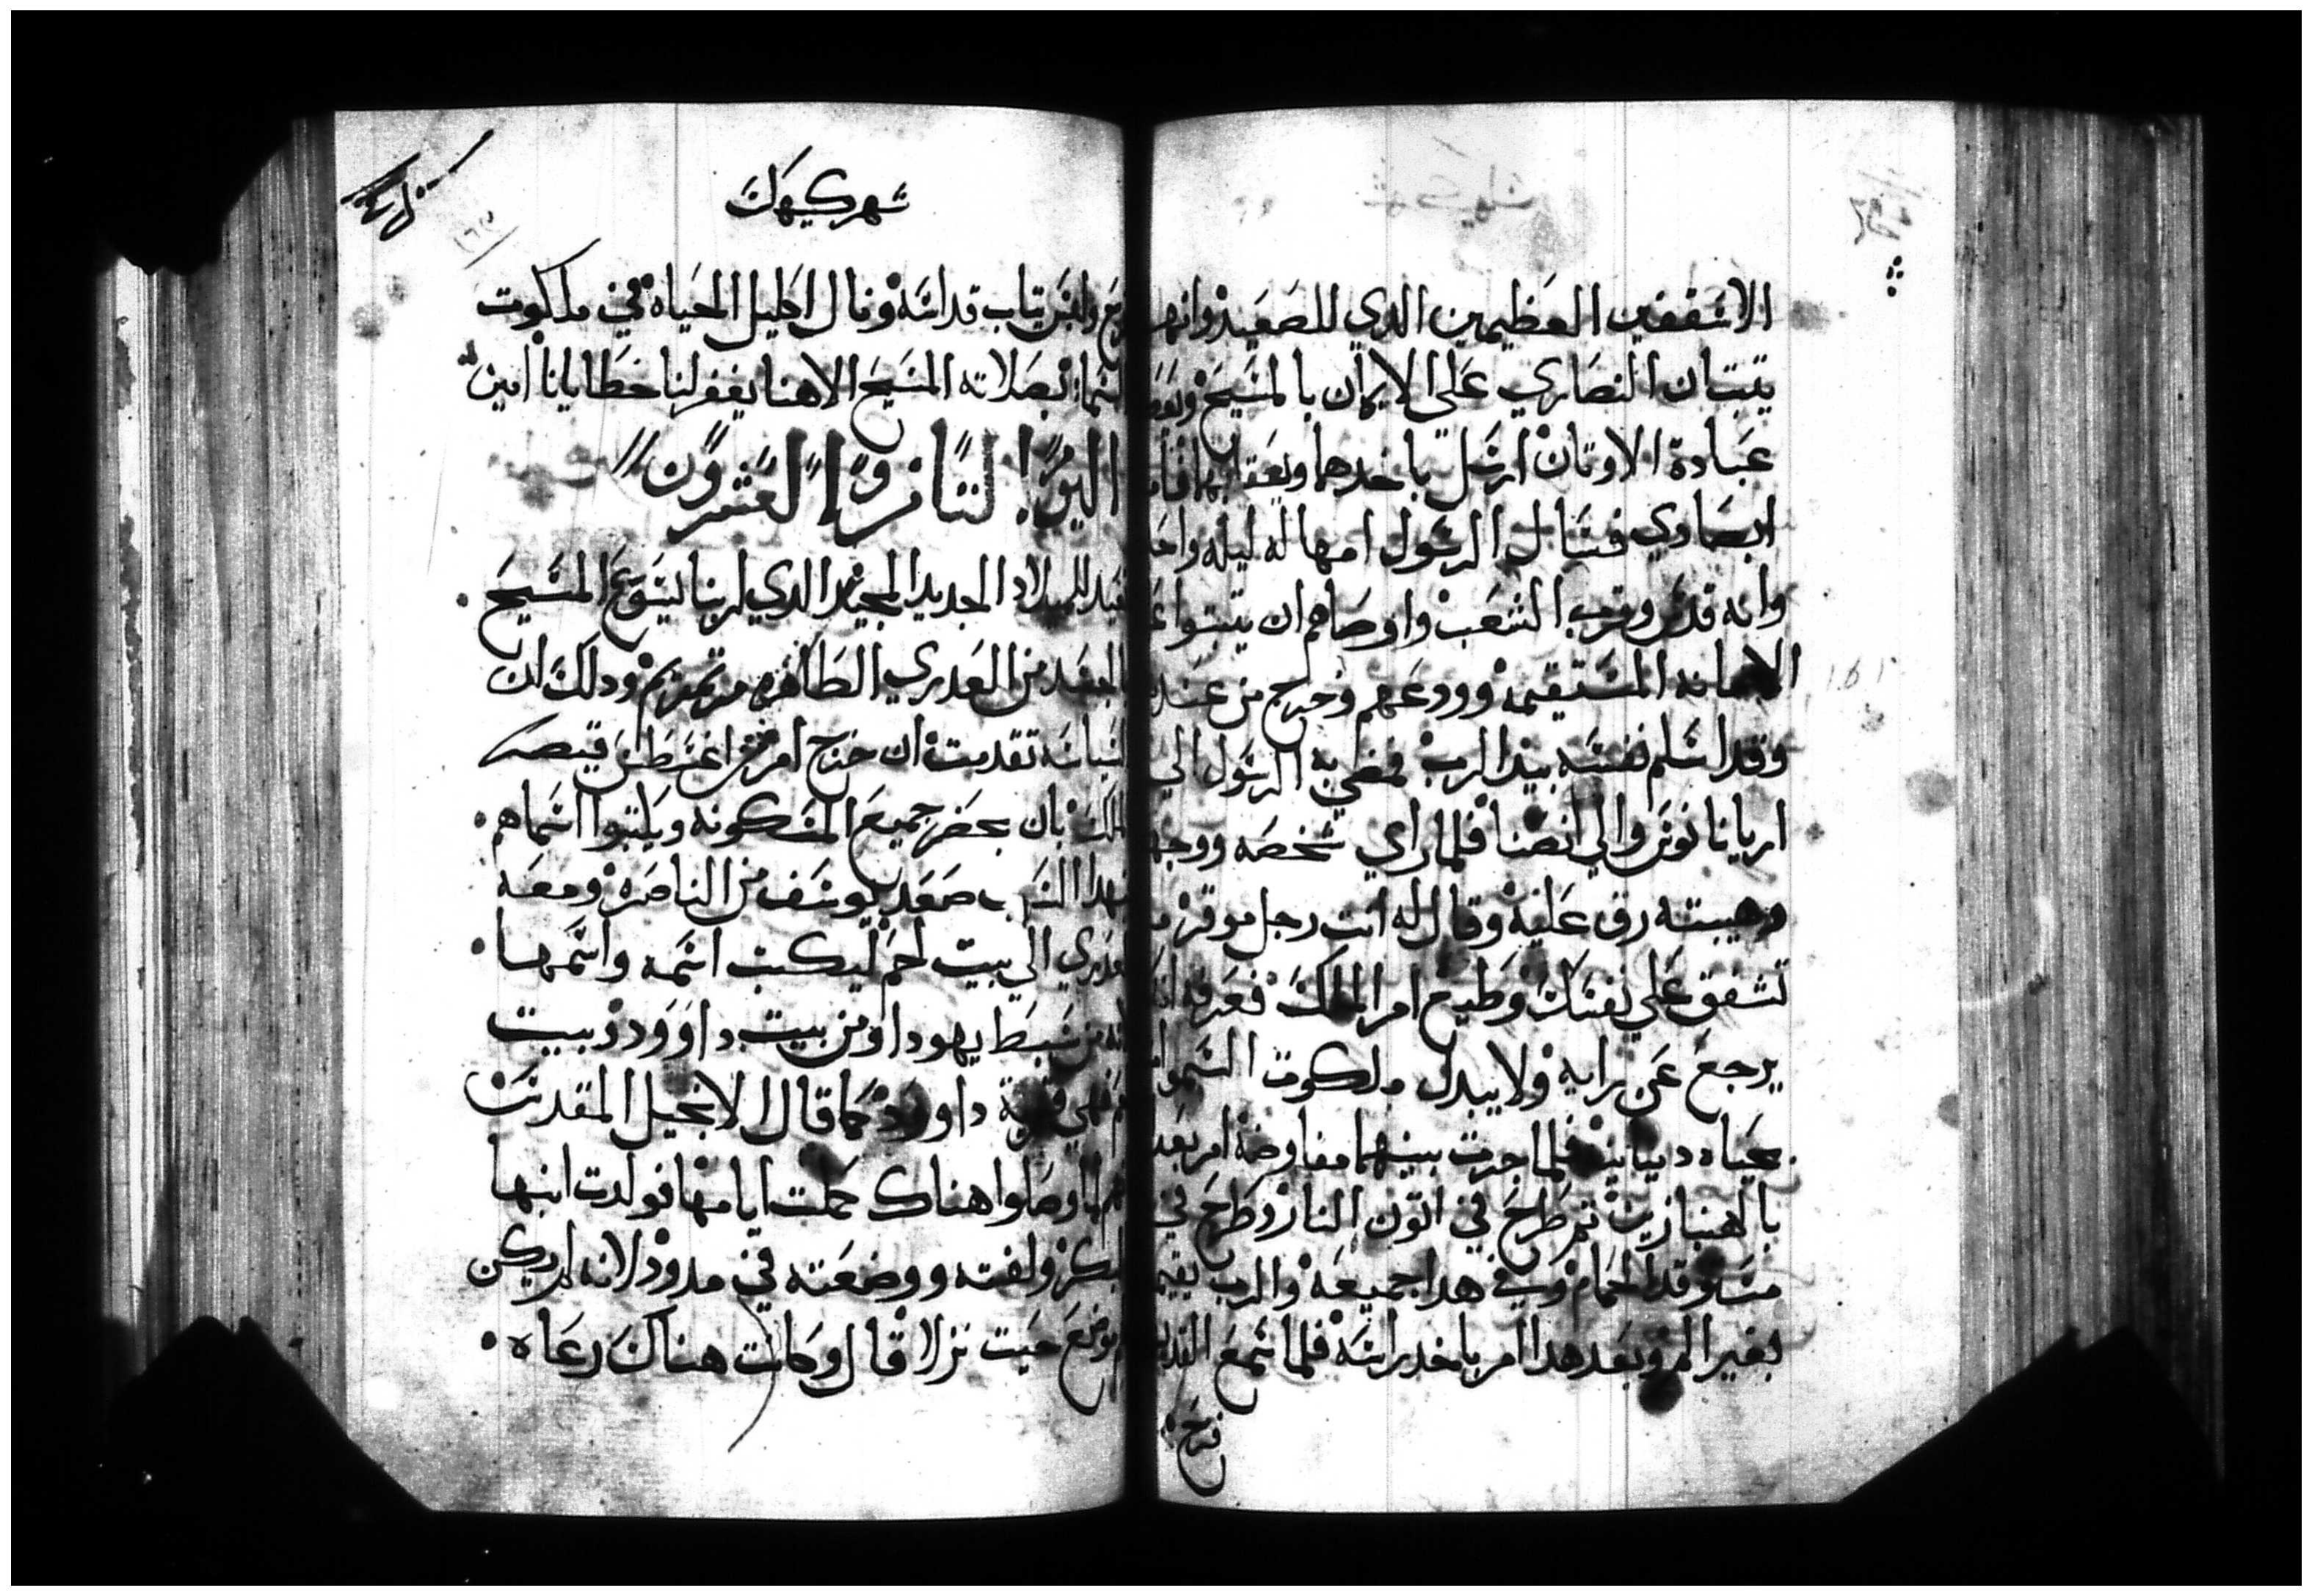 الاسقفين العظيمين الدي للصعيد وانهما
يتبتان النصاري علي الايمان بالمسيح
عبادة الاوتان ارسل ياخدهما ويعاقبهما
ابصادي فسال الرسول امهاله ليله واحده
وانه قدس وقرب الشعب واوصاهم ان يتبتوا
الامانه المستقيمه وودعهم وخرج من عندهم
وقد اسلم نفسه بيد الرب فمضي به الرسول الي
اريانا نوس والي انصنا فلما راي شخصه ووجهه
وهيبته رق عليه وقال له انت رجل موقر
تشفق علي نفسك وطيع امر الملك فعرفه
يرجع عن رايه ولا يبدل ملكوت السموات
بحياه دنيانيه فلما جرت بينهما مفاوضه امر بعدابه
بالهنبازين تم طرح في اتون النار وطرح في
مستوقد الحمام وفي هدا جميعه والرب يقيمه
بغير الم وبعد هدا امر باخد راسه فلما سمع القديس
فرح
شهر كيهك
فرح ولبس تياب قداسه ونال اكليل الحياه في ملكوت
السما بصلاته المسيح الاهنا يغفر لنا خطايانا امين
اليوم التاسع والعشرون
الميلاد الجديد المجيد الدي لربنا يسوع المسيح
من العدري الطاهره مرتمريم ودلك ان
تقدمت ان خرج امر من اغسطس قيصر
الملك بان يحضر جميع المسكونه ويكتبوا اسماهم
لهدا السبب صعد يوسف من الناصره ومعه
العدري الي بيت لحم ليكتب اسمه واسمها
لانه من سبط يهودا ومن بيت داوود وبيت
لحم هي قرية داوود كما قال الانجيل المقدس
اوصلوا هناك كملت ايامها فولدت ابنها
البكر ولفته ووضعته في مدود لانه لم يكن
موضع حيت نزلا قال وكانت هناك رعاه